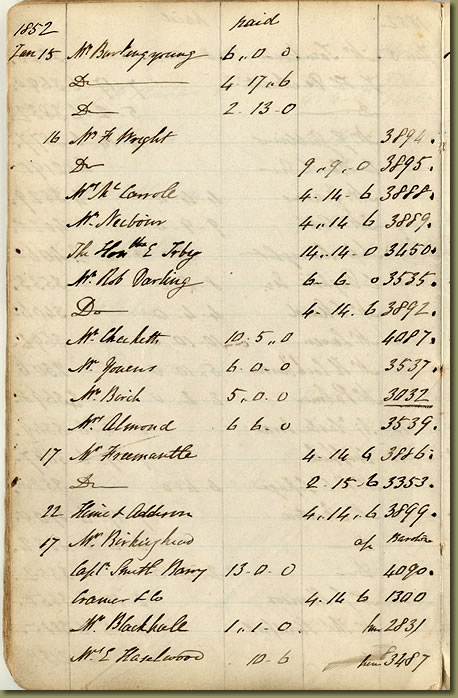 1852 paid
Jan 15 Mr Barking young 6 .. 0 .. 0
Do 4 .. 17 .. 6
Do 2 - 13 - 0
16 Mr F Wright 3894.
Do 9 .. 9 .. 0 3895.
Mrs Mc Carrole 4 - 14 - 6 3888.
Mr Necbour 4 .. 14 6 3889.
The Honble E Irby 14 .. 14 - 0 3450.
Mr Rob Darling 6 - 6 0 3535.
Do 4 - 14 . 6 3892.
Mr Checketts 10 . 5 .. 0 4087.
Mr Youens 6 - 0 - 0 3537.
Mr Birch 5 .. 0 .. 0 3032
Mrs Almond 6 6 .. 0 3539.
17 Mr Freemantle 4 - 14 6 3886.
Do 2 - 15 . 6 3353.
22 Heine & Adderson 4 .. 14 .. 6 3899.
17 Mr Birkinghead
Capt Smith Barry 13 - 0 - 0 4090.
Cramer & Co 4 - 14 6 1300
Mr Blackhale 1 .. 1 .. 0 2831
Mr E Haselwood 10 - 6 3487